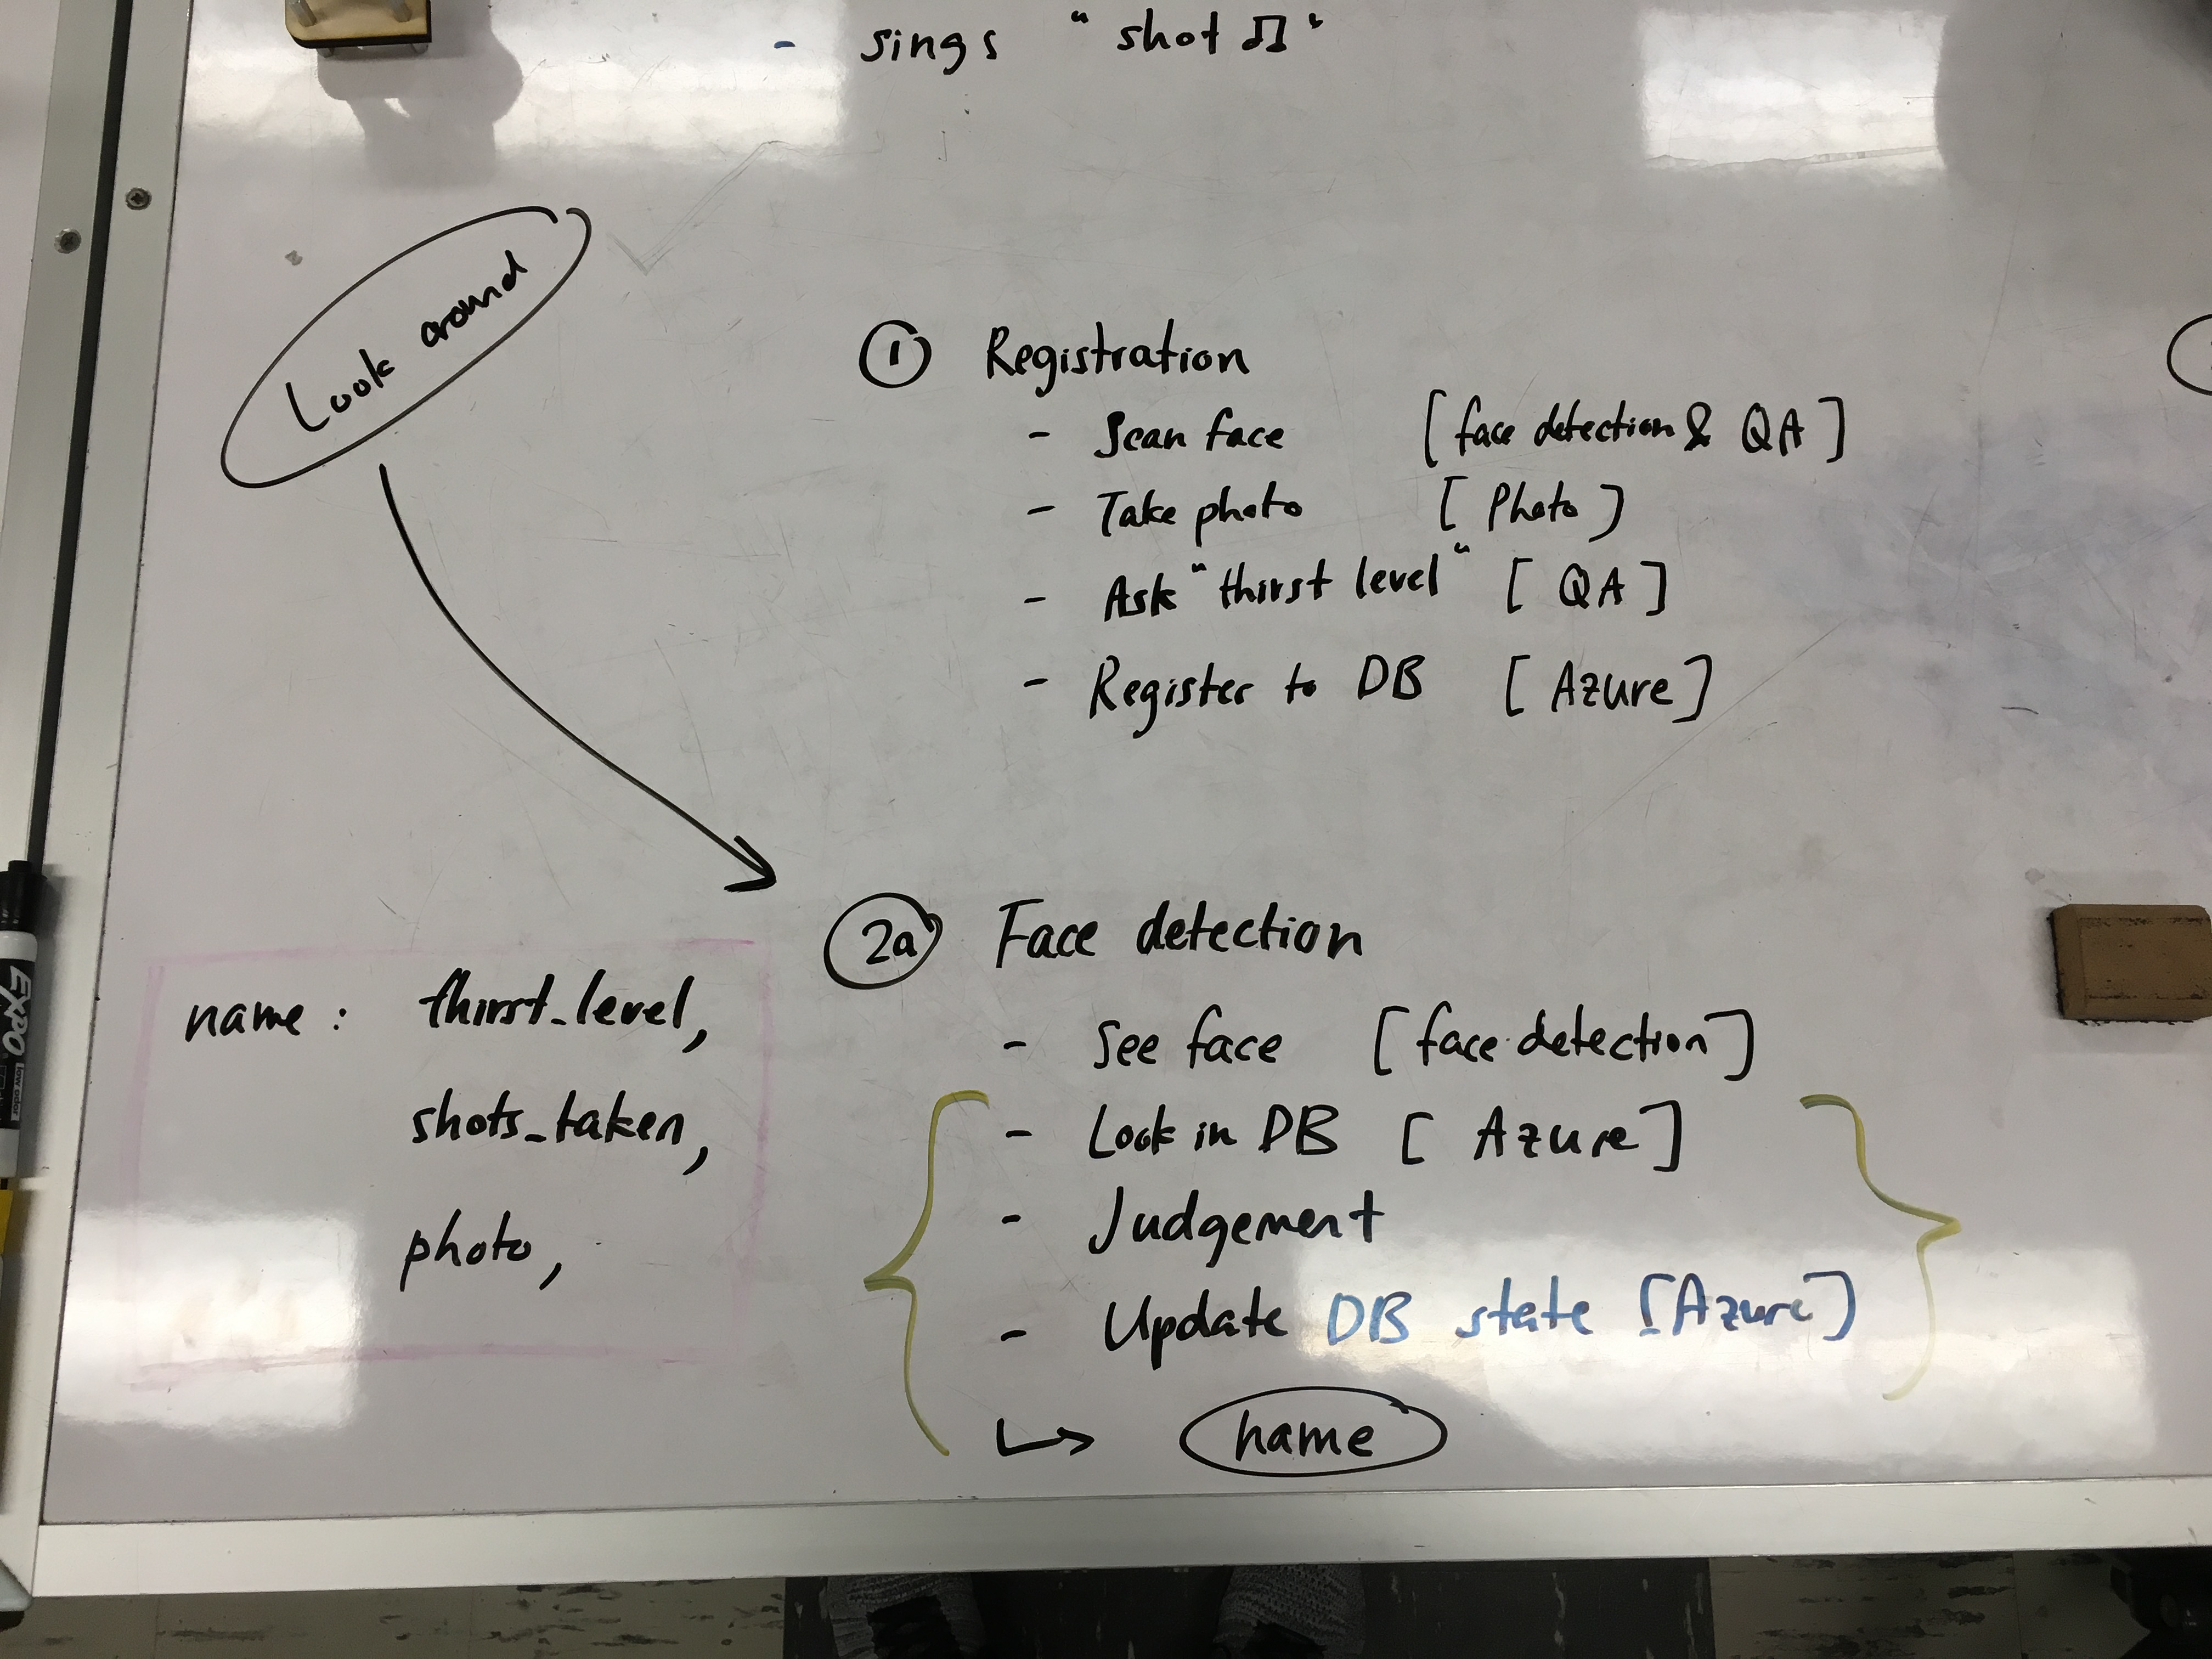 - sings "shot ♫"
Look around
① Registration
- Scan face [face detection & QA]
- Take photo [Photo]
- Ask "thirst level" [QA]
- Register to DB [Azure]
2a Face detection
- See face [face detection]
- Look in DB [Azure]
- Judgement
- Update DB state [Azure]
↳ name
name : thirst_level,
shots_taken,
photo,
EXPO
low odor